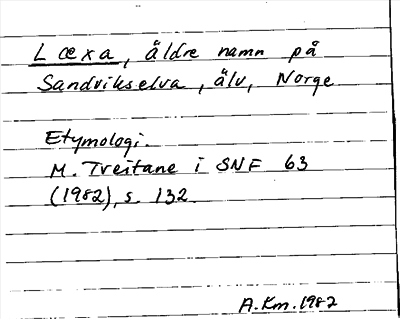 Læxa, äldre namn på
Sandvikselva, älv, Norge
Etymologi.
M. Tveitane i SNF 63
(1982), s. 132.
A.Km. 1982